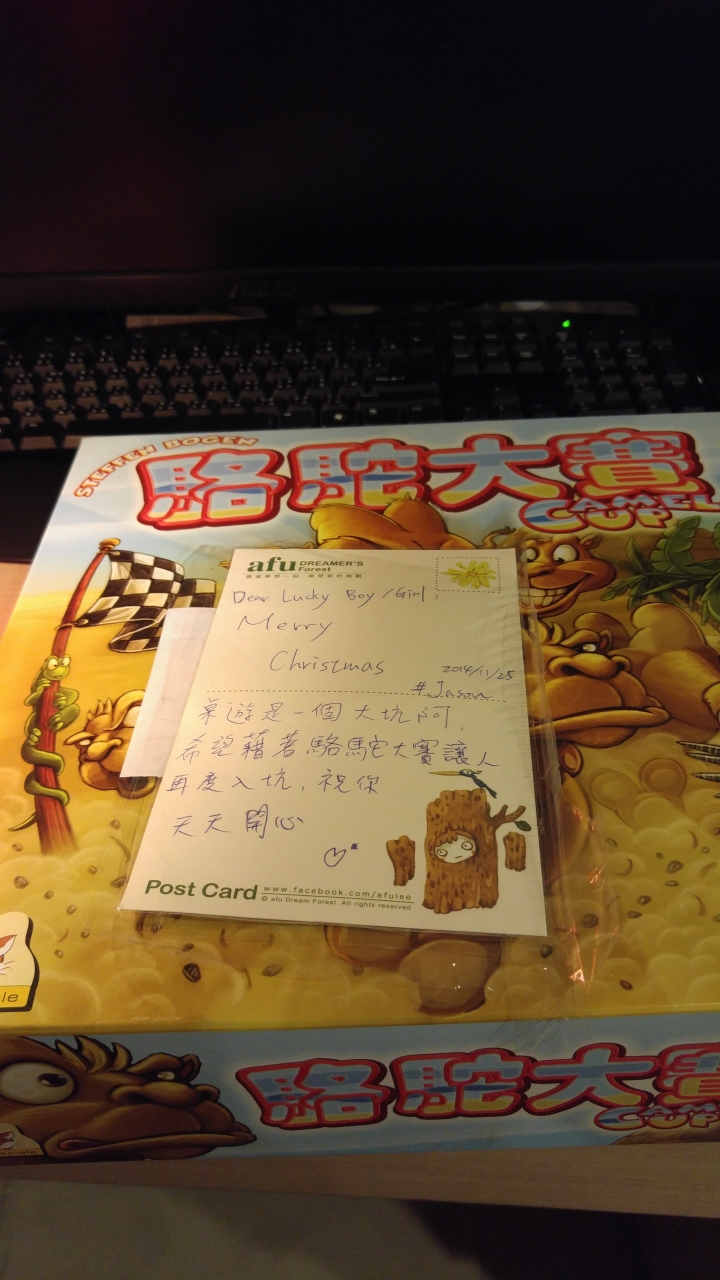 STEFFEN BOGEN
駱駝大賽
CAMEL
CUP
afu DREAMER'S
Forest
Dear Lucky Boy/Girl,
Merry
Christmas
2014/11/25
#Jason
桌遊是一個大坑阿,
希望藉著駱駝大賽讓人
再度入坑,祝你
天天開心
Post Card www.facebook.com/afulee
© afu Dream Forest. All rights reserved
le
駱駝大賽
CAMEL
CUP